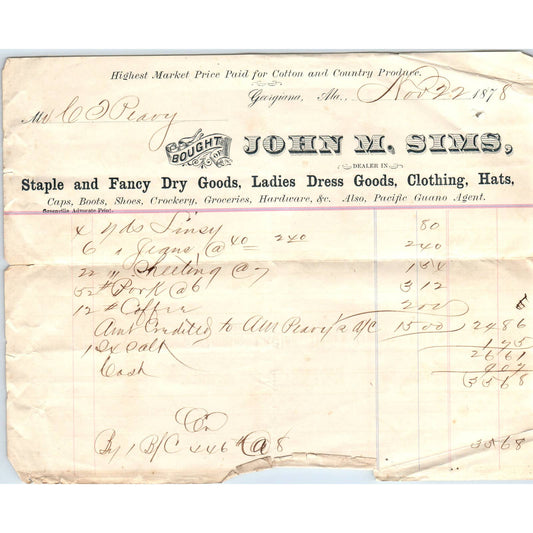 Highest Market Price Paid for Cotton and Country Produce.
Georgiana, Ala., Nov 22 1878
Mr C T Peavy
BOUGHT OF JOHN M. SIMS,
DEALER IN
Staple and Fancy Dry Goods, Ladies Dress Goods, Clothing, Hats,
Caps, Boots, Shoes, Crockery, Groceries, Hardware, &c. Also, Pacific Guano Agent.
Greenville Advocate Print.
4 yds Linsy 80
6 " Jeans @ 40 = 240 240
22 " Sheeting @ 7 154
52 # Pork @ 6 312
12 # Coffee 200
Amt Credited to AM Peavy a/c 1500 2486
1 Sx Salt 175
2661
Cash 907
3568
Cr
By 1 B/C 446 # @ 8 3568